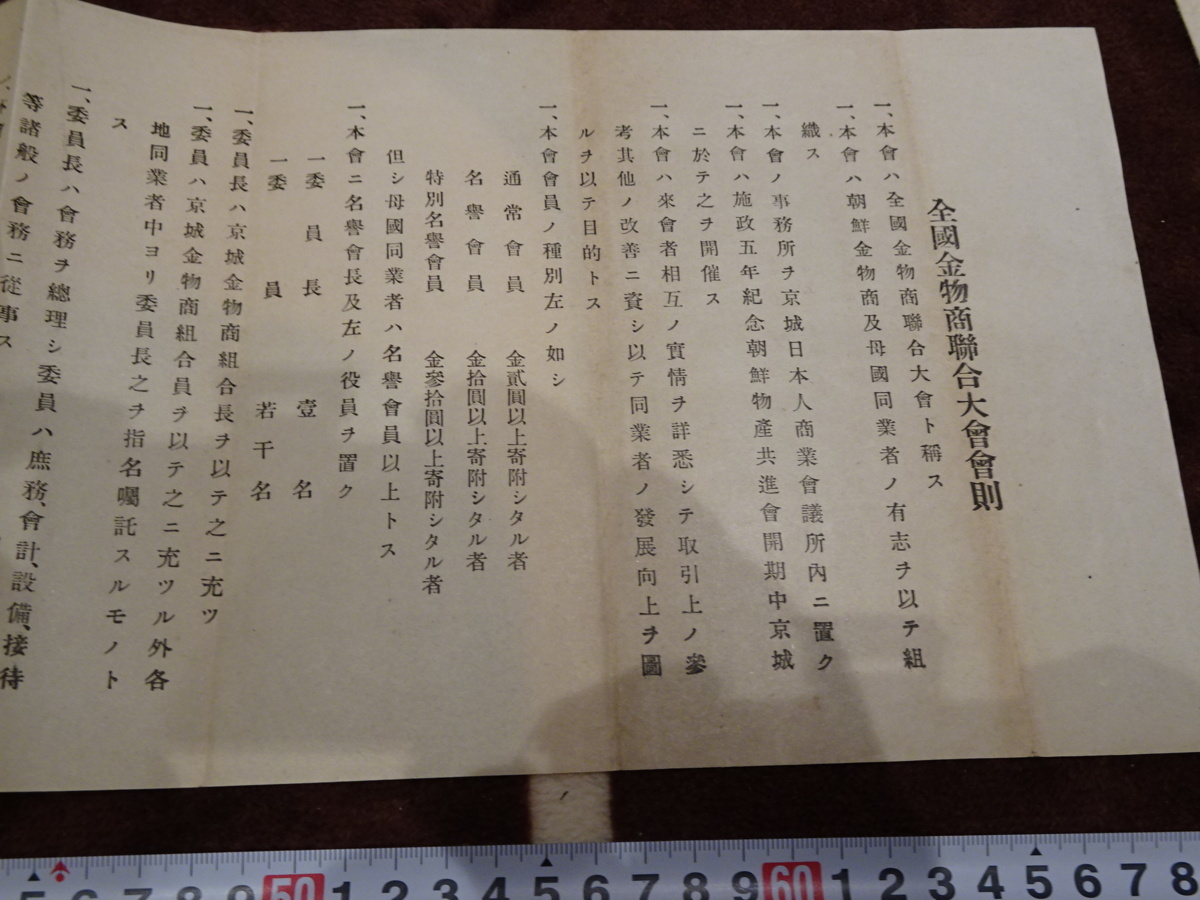 全國金物商聯合大會會則
一、本會ハ全國金物商聯合大會ト稱ス
一、本會ハ朝鮮金物商及母國同業者ノ有志ヲ以テ組
織ス
一、本會ノ事務所ヲ京城日本人商業會議所內ニ置ク
一、本會ハ施政五年紀念朝鮮物產共進會開期中京城
ニ於テ之ヲ開催ス
一、本會ハ來會者相互ノ實情ヲ詳悉シテ取引上ノ參
考其他ノ改善ニ資シ以テ同業者ノ發展向上ヲ圖
ルヲ以テ目的トス
一、本會會員ノ種別左ノ如シ
通常會員 金貳圓以上寄附シタル者
名譽會員 金拾圓以上寄附シタル者
特別名譽會員 金參拾圓以上寄附シタル者
但シ母國同業者ハ名譽會員以上トス
一、本會ニ名譽會長及左ノ役員ヲ置ク
一委員長 壹名
一委員 若干名
一、委員長ハ京城金物商組合長ヲ以テ之ニ充ツ
一、委員ハ京城金物商組合員ヲ以テ之ニ充ツル外各
地同業者中ヨリ委員長之ヲ指名囑託スルモノト
ス
一、委員長ハ會務ヲ總理シ委員ハ庶務、會計、設備、接待
等諸般ノ會務ニ從事ス
5 6 7 8 9 50 1 2 3 4 5 6 7 8 9 60 1 2 3 4 5 6 7 8